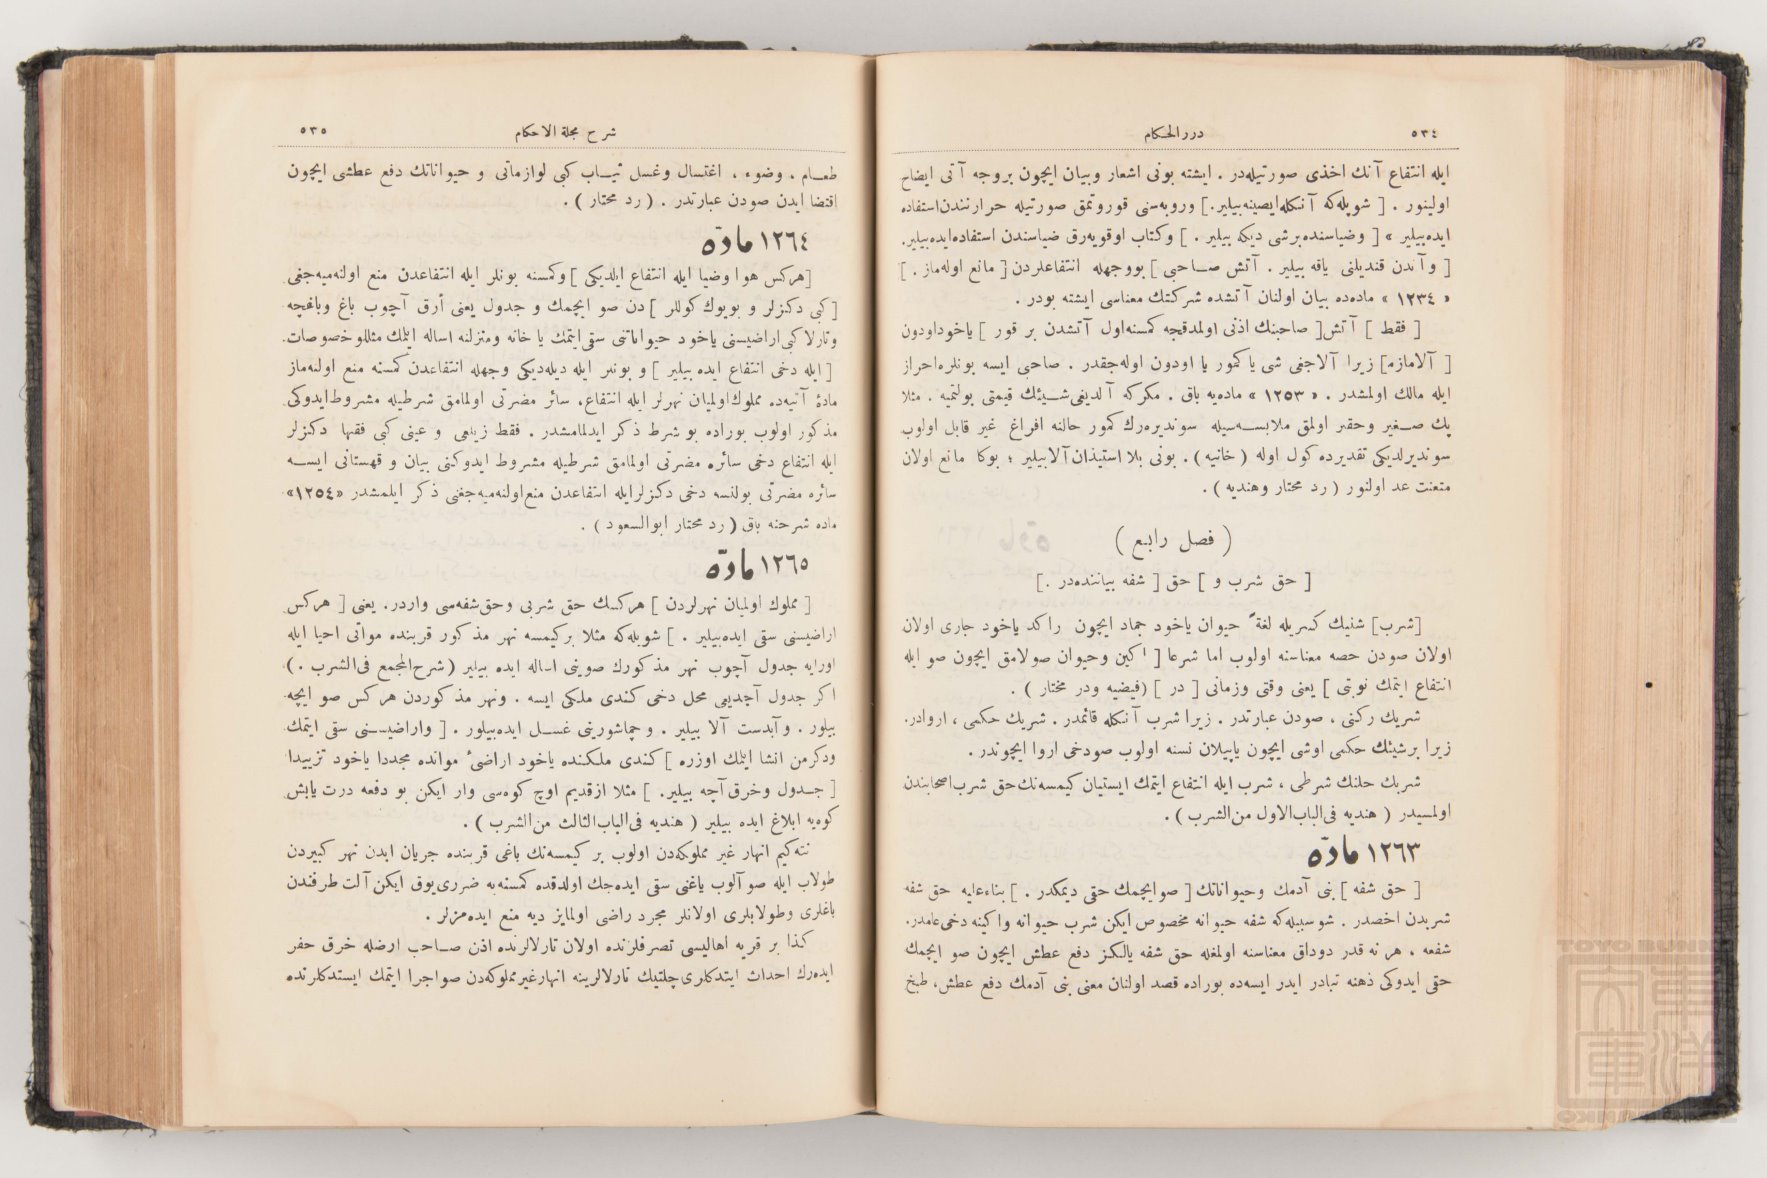 ٥٣٤ درر الحكام
ايله انتفاع آنك اخذى صورتيله‌در . ايشته بونى اشعار وبيان ايچون بروجه آتى ايضاح
اولينور . [ شويله‌كه آنكله ايصينه‌بيلير. ] وروبه‌سنى قوروتمق صورتيله حرارتندن استفاده
ايده‌بيلير » [ وضياسنده برشى ديكه بيلير . ] وكتاب اوقويه‌رق ضياسندن استفاده ايده‌بيلير.
[ و آندن قنديلنى ياقه بيلير . آتش صاحبى ] بووجهله انتفاعلردن [ مانع اوله‌ماز . ]
« ١٢٣٤ » ماده‌ده بيان اولنان آتشده شركتك معناسى ايشته بودر .
[ فقط ] آتش [ صاحبنك اذنى اولمدقجه كمسنه اول آتشدن بر قور ] ياخود اودون
[ آلاماز. ] زيرا آلاجغى شى يا كمور يا اودون اوله‌جقدر . صاحبى ايسه بونلره احراز
ايله مالك اولمشدر . « ١٢٥٣ » ماده‌يه باق . مكركه آلديغى شيئك قيمتى بولنميه . مثلا
پك صغير وحقير اولمق ملابسه‌سيله سونديره‌رك كمور حالنه افراغ غير قابل اولوب
سونديرلديكى تقديرده كول اوله ( خانيه ) . بونى بلا استيذان آلابيلير ؛ بوكا مانع اولان
متعنت عد اولنور ( رد محتار وهنديه ) .
( فصل رابع )
[ حق شرب و ] حق [ شفه بياننده‌در . ]
[ شرب ] شنيك كسريله لغةً حيوان ياخود جماد ايچون راكد ياخود جارى اولان
اولان صودن حصه معناسنه اولوب اما شرعا [ اكين وحيوان صولامق ايچون صو ايله
انتفاع ايتمك نوبتى ] يعنى وقتى وزمانى [ در ] ( فيضيه ودر مختار ) .
شربك ركنى ، صودن عبارتدر . زيرا شرب آنكله قائمدر . شربك حكمى ، اروادر.
زيرا برشيئك حكمى اوشى ايچون ياپيلان نسنه اولوب صودخى اروا ايچوندر .
شربك حلنك شرطى ، شرب ايله انتفاع ايتمك ايستيان كيمسه‌نك حق شرب اصحابندن
اولمسيدر ( هنديه فى الباب الاول من الشرب ) .
١٢٦٣ مادّه
[ حق شفه ] بنى آدمك وحيواناتك [ صو ايچمك حقى ديمكدر . ] بناءعليه حق شفه
شربدن اخصدر . شو سببله‌كه شفه حيوانه مخصوص ايكن شرب حيوانه واكينه دخى عامدر.
شفعه ، هر نه قدر دوداق معناسنه اولمغله حق شفه يالكز دفع عطش ايچون صو ايچمك
حقى ايدوكى ذهنه تبادر ايدر ايسه‌ده بوراده قصد اولنان معنى بنى آدمك دفع عطش، طبخ
شرح مجلة الاحكام ٥٣٥
طعام ، وضوء ، اغتسال وغسل ثياب كبى لوازماتى و حيواناتك دفع عطشى ايچون
اقتضا ايدن صودن عبارتدر . ( رد محتار ) .
١٢٦٤ مادّه
[ هركس هوا وضيا ايله انتفاع ايلديكى ] وكمسنه بونلر ايله انتفاعدن منع اولنه‌ميه‌جغى
[ كبى دكزلر و بويوك كوللر ] دن صو ايچمك و جدول يعنى أرق آچوب باغ وباغچه
وتارلا كبى اراضيسنى ياخود حيواناتنى سقى ايتمك يا خانه ومنزلنه اساله ايلمك مثللو خصوصات
[ ايله دخى انتفاع ايده بيلير ] و بونلر ايله ديله‌ديكى وجهله انتفاعدن كمسنه منع اولنه‌ماز
مادۀ آتيه‌ده مملوك اولميان نهرلر ايله انتفاع، سائر مضرتى اولمامق شرطيله مشروط ايدوكى
مذكور اولوب بوراده بو شرط ذكر ايدلمامشدر . فقط زيلعى و عينى كبى فقها دكزلر
ايله انتفاع دخى سائره مضرتى اولمامق شرطيله مشروط ايدوكنى بيان و قهستانى ايسه
سائره مضرتى بولنسه دخى دكزلرايله انتفاعدن منع اولنه‌ميه‌جغنى ذكر ايلمشدر «١٢٥٤»
ماده شرحنه باق ( رد محتار ابوالسعود ) .
١٢٦٥ مادّه
[ مملوك اولميان نهرلردن ] هركسك حق شربى وحق شفه‌سى واردر. يعنى [ هركس
اراضيسنى سقى ايده‌بيلير . ] شويله‌كه مثلا بر كيمسه نهر مذكور قربنده مواتى احيا ايله
اورايه جدول آچوب نهر مذكورك صوينى اساله ايده بيلير ( شرح المجمع فى الشرب . )
اكر جدول آچديغى محل دخى كندى ملكى ايسه . ونهر مذكوردن هركس صو ايچه
بيلور . و آبدست آلا بيلير . و چماشورينى غسل ايده‌بيلور . [ واراضيسنى سقى ايتمك
ودكرمن انشا ايلمك اوزره ] كندى ملكنده ياخود اراضئ مواتده مجددا ياخود تزييدا
[ جدول وخرق آچه بيلير. ] مثلا ازقديم اوچ كوه‌سى وار ايكن بو دفعه درت يا بش
كوه‌يه ابلاغ ايده بيلير ( هنديه فى الباب الثالث من الشرب ) .
نته‌كيم انهار غير مملوكه‌دن اولوب بر كيمسه‌نك باغى قربنده جريان ايدن نهر كبيردن
طولاب ايله صو آلوب باغنى سقى ايده‌جك اولدقده كمسنه‌يه ضررى يوق ايكن آلت طرفندن
باغلرى وطولابلرى اولانلر مجرد راضى اولمايز ديه منع ايده‌مزلر .
كذا بر قريه اهاليسى تصرفلرنده اولان تارلالرنده اذن صاحب ارضله خرق حفر
ايده‌رك احداث ايتدكلرى چلتيك تارلالرينه انهار غير مملوكه‌دن صو اجرا ايتمك ايستدكلرنده